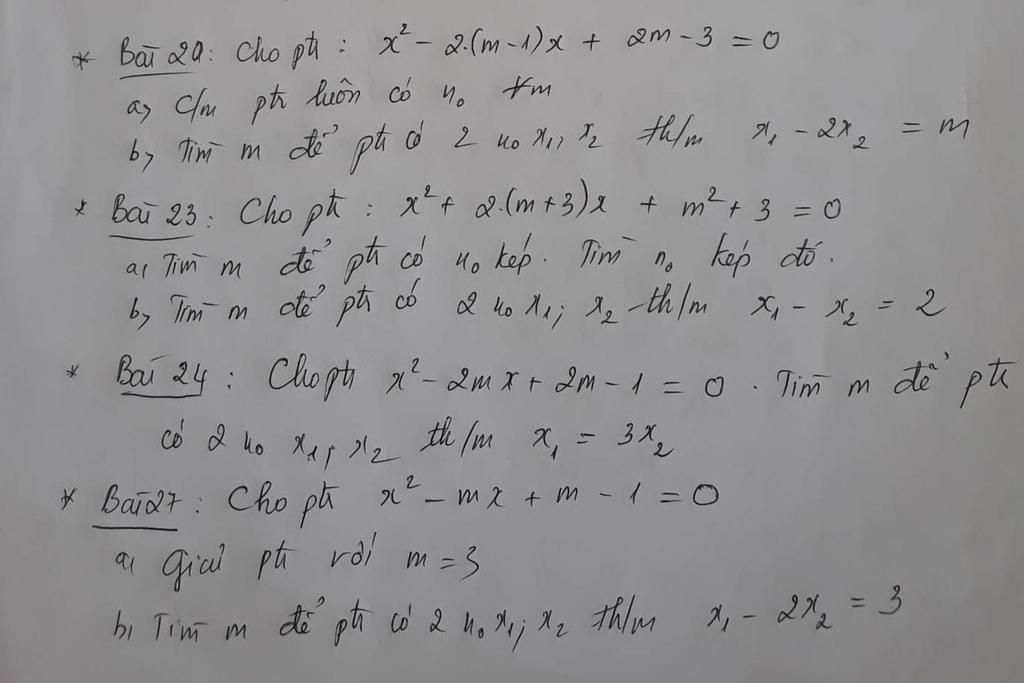 * Bài 20: Cho pt : x² - 2.(m-1)x + 2m - 3 = 0
a, C/m pt luôn có n₀ ∀m
b, Tìm m để pt có 2 n₀ x₁, x₂ th/m x₁ - 2x₂ = m
* Bài 23 : Cho pt : x² + 2.(m+3)x + m² + 3 = 0
a, Tìm m để pt có n₀ kép. Tìm n₀ kép đó.
b, Tìm m để pt có 2 n₀ x₁; x₂ th/m x₁ - x₂ = 2
* Bài 24 : Cho pt x² - 2mx + 2m - 1 = 0 . Tìm m để pt
có 2 n₀ x₁, x₂ th/m x₁ = 3x₂
* Bài 27 : Cho pt x² - mx + m - 1 = 0
a, Giải pt với m = 3
b, Tìm m để pt có 2 n₀ x₁; x₂ th/m x₁ - 2x₂ = 3